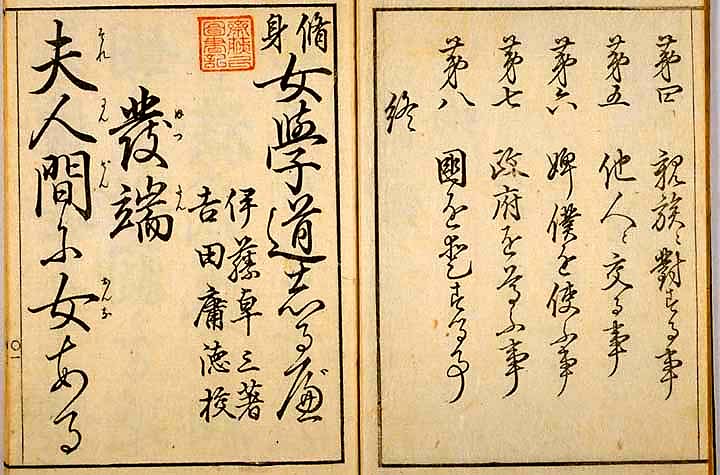 第四 親族に對する事
第五 他人に交る事
第六 婢僕を使ふ事
第七 政府を尊ふ事
第八 國を愛する事
終
脩身 女學道志るべ
伊藤卓三著
吉田庸徳校
發端
夫人間に女ある
〇一